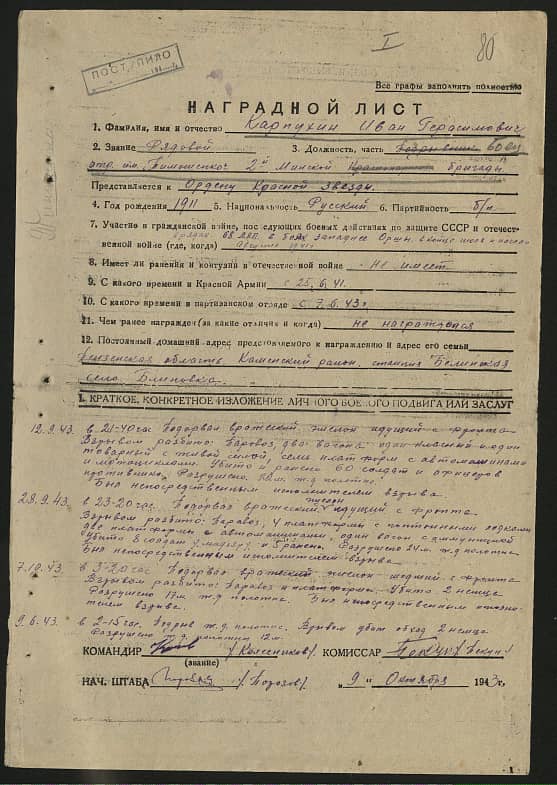 I
80
ПОСТУПИЛО
Все графы заполнять полностью
НАГРАДНОЙ ЛИСТ
1. Фамилия, имя и отчество Карпухин Иван Герасимович
2. Звание Рядовой 3. Должность, часть боец
отр. им. Тимошенко 2й Минской бригады
Представляется к Ордену Красной Звезды.
4. Год рождения 1911 5. Национальность Русский 6. Партийность б/п
7. Участие в гражданской войне, последующих боевых действиях по защите СССР и отечест-
венной войне (где, когда) в боях западнее Орши в конце июля и начале
августа
8. Имеет ли ранения и контузии в отечественной войне - не имеет.
9. С какого времени в Красной Армии с 25.6.41.
10. С какого времени в партизанском отряде с 7.6.43г
11. Чем ранее награжден (за какие отличия и когда) не награждался
12. Постоянный домашний адрес представляемого к награждению и адрес его семьи
Пензенская область, Каменский район, станция Белинская
село Блиновка.
I. КРАТКОЕ, КОНКРЕТНОЕ ИЗЛОЖЕНИЕ ЛИЧНОГО БОЕВОГО ПОДВИГА ИЛИ ЗАСЛУГ
12.9.43. в 21-40 час Подорван вражеский эшелон идущий с фронта
Взрывом разбито: Паровоз, два вагона один классный и один
товарный с живой силой, семь платформ с автомашинами
и мотоциклами. Убито и ранено 60 солдат и офицеров
противника. Разрушено ж.д. полотна
Был непосредственным исполнителем взрыва.
28.9.43. в 23-20 час. Подорван вражеский эшелон идущий с фронта.
Взрывом разбито: Паровоз, 4 платформы с понтонными лодками
две платформы с автомашинами, один вагон с амуницией
Убито 8 солдат и 5 ранено. Разрушено 24 м. ж.д полотна
Был непосредственным исполнителем взрыва
7.10.43 в 3-20 час Подорван вражеский эшелон шедший с фронта
Взрывом разбито: Паровоз и платформы. Убито 2 немца
Разрушено 17м ж.д полотна. Был непосредственным исполни-
телем взрыва.
9.6.43. в 2-15 час. Подрыв ж.д. полотна. Взрывом убит обход 2 немца
Разрушено ж.д. полотна 12м.
КОМАНДИР /Колесников/. КОМИССАР
(звание)
НАЧ. ШТАБА „9" Октября 1943г.